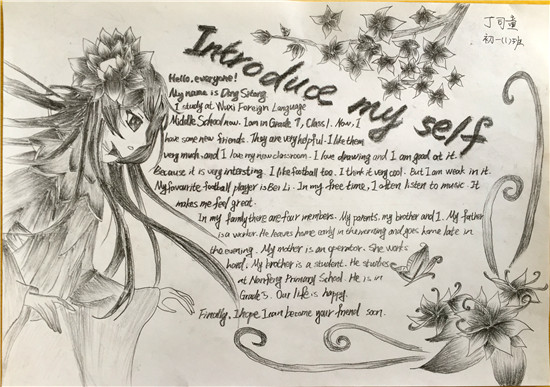 丁司童
初一(1)班
Introduce my self
Hello, everyone!
My name is Ding Sitong
I study at Wuxi Foreign Language
Middle School now. I am in Grade 7, Class 1. Now, I
have some new friends. They are very helpful. I like them
very much, and I love my new classroom. I love drawing and I am good at it.
Because it is very interesting. I like football too. I think it very cool. But I am weak in it.
My favourite football player is Bei Li. In my free time, I often listen to music. It
makes me feel great.
In my family there are four members. My parents, my brother and I. My father
is a worker. He leaves home early in the morning and goes home late in
the evening. My mother is an operator. She works
hard. My brother is a student. He studies
at Primary School. He is in
Grade 3. Our life is happy.
Finally, I hope I can become your friend soon.